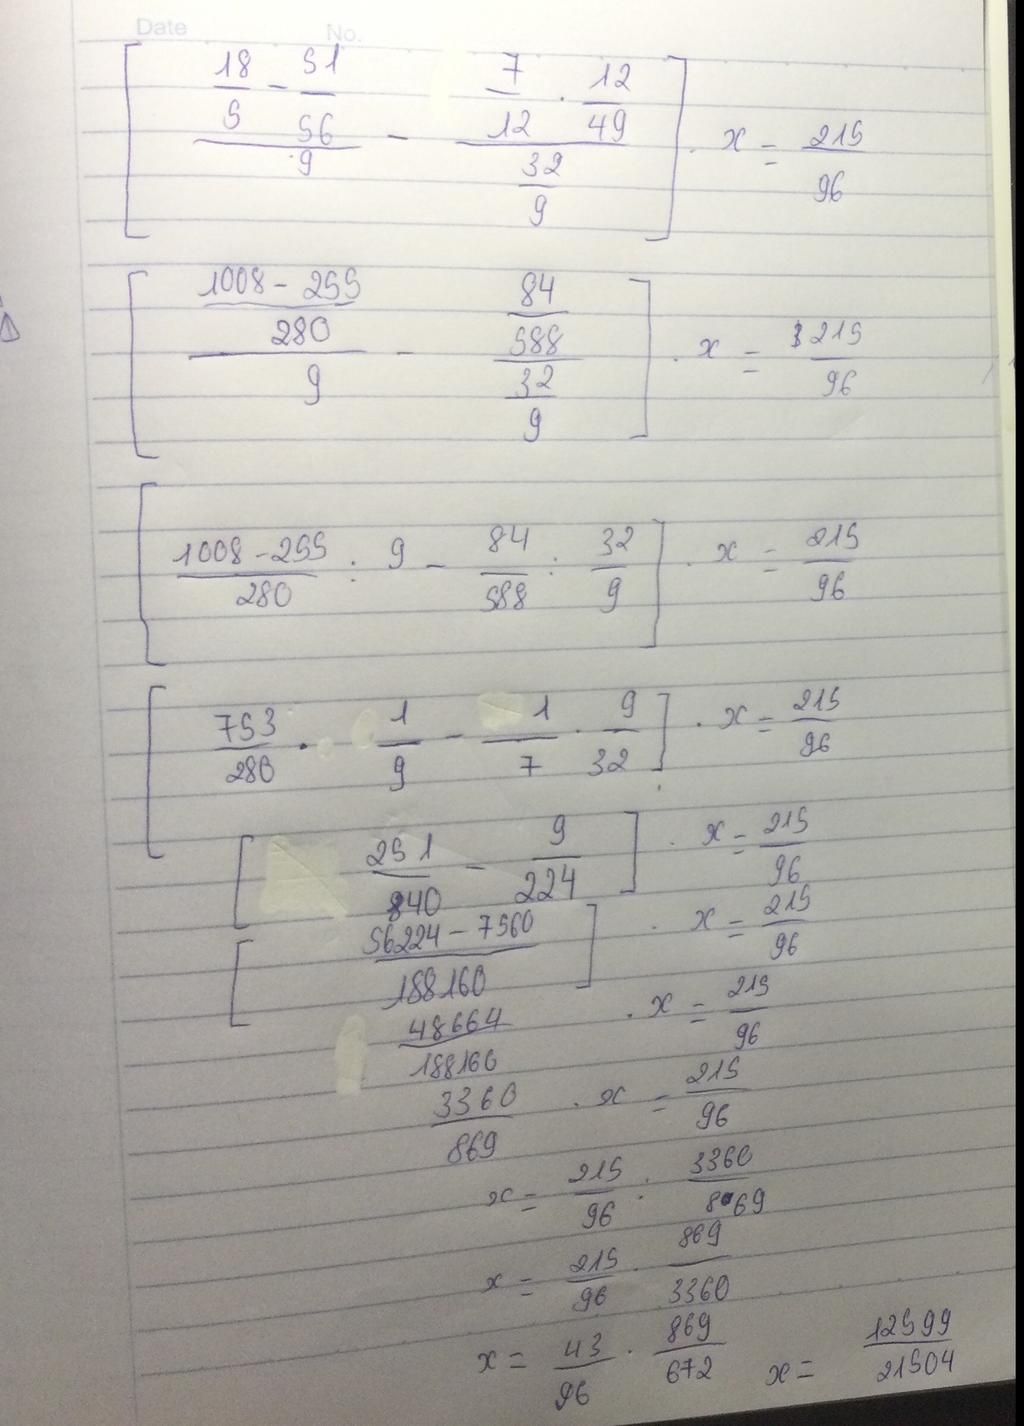 Date No.
[ (18/5 - 51/56)/9 - (7/12 · 12/49)/(32/9) ] · x = 215/96
[ ((1008 - 255)/280)/9 - (84/588)/(32/9) ] · x = 215/96
[ (1008 - 255)/280 : 9 - 84/588 : 32/9 ] · x = 215/96
[ 753/280 · 1/9 - 1/7 · 9/32 ] · x = 215/96
[ 251/840 - 9/224 ] · x = 215/96
[ (56224 - 7560)/188160 ] · x = 215/96
48664/188160 · x = 215/96
3360/869 · x = 215/96
x = 215/96 : 3360/869
x = 215/96 · 869/3360
x = 43/96 · 869/672 x = 12599/21504